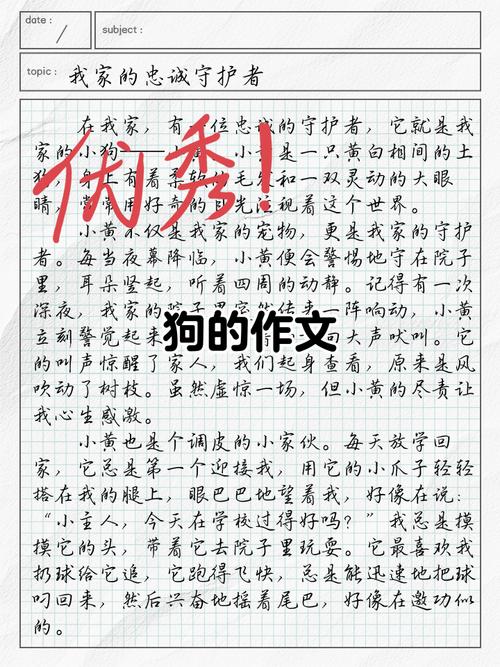 date :
/
subject :
topic : 我家的忠诚守护者
在我家，有位忠诚的守护者，它就是我
家的小狗小是一只黄白相间的土
身上有着毛和一双灵动的大眼
睛，常常用好奇的目光注视着这个世界。
优秀！
小黄不仅是我家的宠物，更是我家的守护
者。每当夜幕降临，小黄便会警惕地守在院子
里，耳朵竖起，听着四周的动静。记得有一次
深夜，我家的一阵响动，小黄
立刻警觉起来大声吠叫。它
狗的作文
的叫声惊醒了家人，我们起身查看，原来是风
吹动了树枝。虽然虚惊一场，但小黄的尽责让
我心生感激。
小黄也是个调皮的小家伙。每天放学回
家，它总是第一个迎接我，用它的小爪子轻轻
搭在我的腿上，眼巴巴地望着我，好像在说：
“小主人，今天在学校过得好吗？”我总是摸
摸它的头，带着它去院子里玩耍。它最喜欢我
扔球给它追，它跑得飞快，总是能迅速地把球
叼回来，然后兴奋地摇着尾巴，好像在邀功似
的。